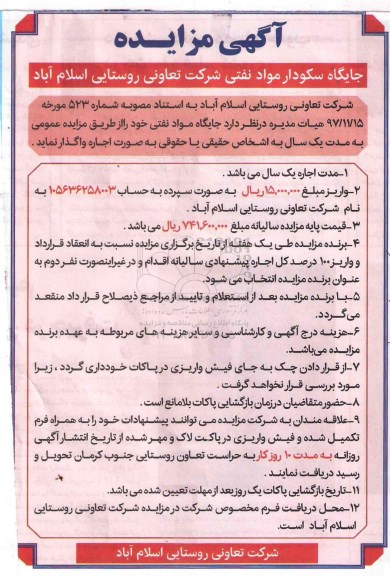 آگهی مزایده
جایگاه سکودار مواد نفتی شرکت تعاونی روستایی اسلام آباد
شرکت تعاونی روستایی اسلام آباد به استناد مصوبه شماره ۵۲۳ مورخه
۹۷/۱/۱۵ هیات مدیره درنظر دارد جایگاه مواد نفتی خود را از طریق مزایده عمومی
به مدت یک سال به اشخاص حقیقی یا حقوقی به صورت اجاره واگذار نماید .
۱-مدت اجاره یک سال می باشد .
۲-واریز مبلغ ۱۵,۰۰۰,۰۰۰ ریال به صورت سپرده به حساب ۱۰۵۶۳۶۲۵۸۰۰۳ به
نام شرکت تعاونی روستایی اسلام آباد .
۳-قیمت پایه مزایده سالیانه مبلغ ۷۴۱,۶۰۰,۰۰۰ ریال می باشد .
۴-برنده مزایده طی یک هفته از تاریخ برگزاری مزایده نسبت به انعقاد قرارداد
و واریز ۱۰۰ درصد کل اجاره پیشنهادی سالیانه اقدام و در غیراینصورت نفر دوم به
عنوان برنده مزایده انتخاب می شود.
۵-با برنده مزایده بعد از استعلام و تایید از مراجع ذیصلاح قرار داد منعقد
می گردد.
۶-هزینه درج آگهی و کارشناسی و سایر هزینه های مربوطه به عهده برنده
مزایده می‌باشد.
۷-از قرار دادن چک به جای فیش واریزی در پاکات خودداری گردد ، زیرا
مورد بررسی قرار نخواهد گرفت .
۸-حضور متقاضیان در زمان بازگشایی پاکات بلامانع است .
۹-علاقه مندان به شرکت مزایده می توانند پیشنهادات خود را به همراه فرم
تکمیل شده و فیش واریزی در پاکت لاک و مهر شده از تاریخ انتشار آگهی
روزانه به مدت ۱۰ روز کار به حراست تعاون روستایی جنوب کرمان تحویل و
رسید دریافت نمایند .
۱۱-تاریخ بازگشایی پاکات یک روز بعد از مهلت تعیین شده می باشد.
۱۲-محل دریافت فرم مخصوص شرکت در مزایده شرکت تعاونی روستایی
اسلام آباد است.
شرکت تعاونی روستایی اسلام آباد